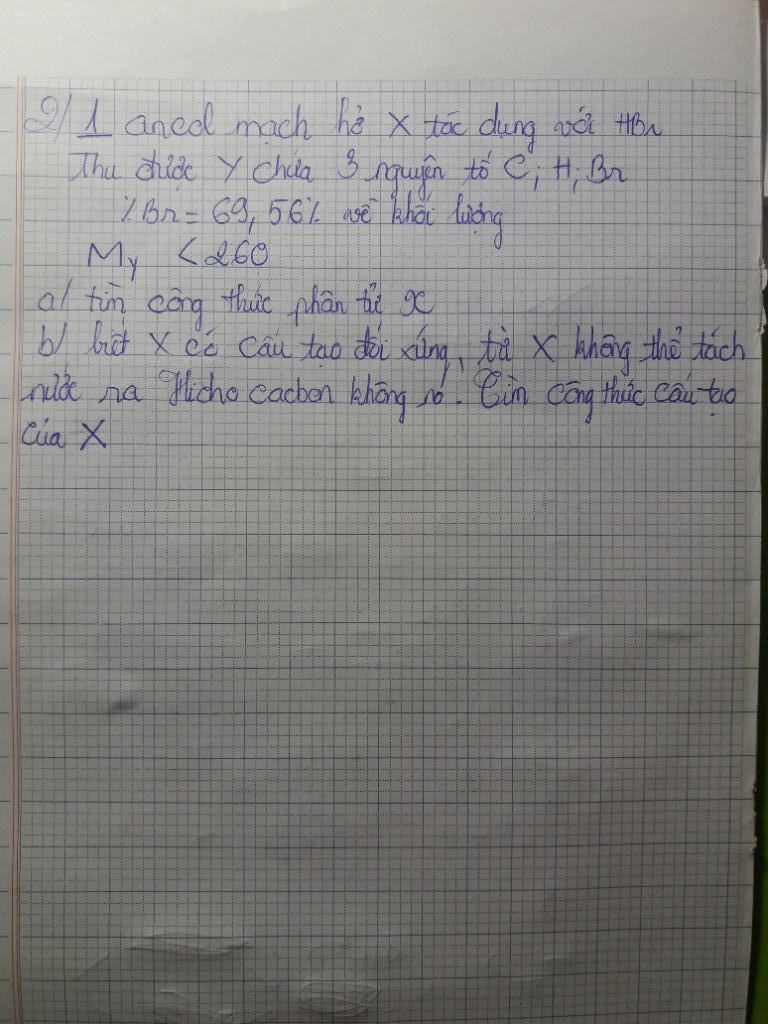 2/ 1 ancol mạch hở X tác dụng với HBr
Thu được Y chứa 3 nguyên tố C; H; Br
%Br = 69,56% về khối lượng
My < 260
a/ tìm công thức phân tử X
b/ biết X có cấu tạo đối xứng, từ X không thể tách
nước ra Hidro cacbon không no. Tìm công thức cấu tạo
của X